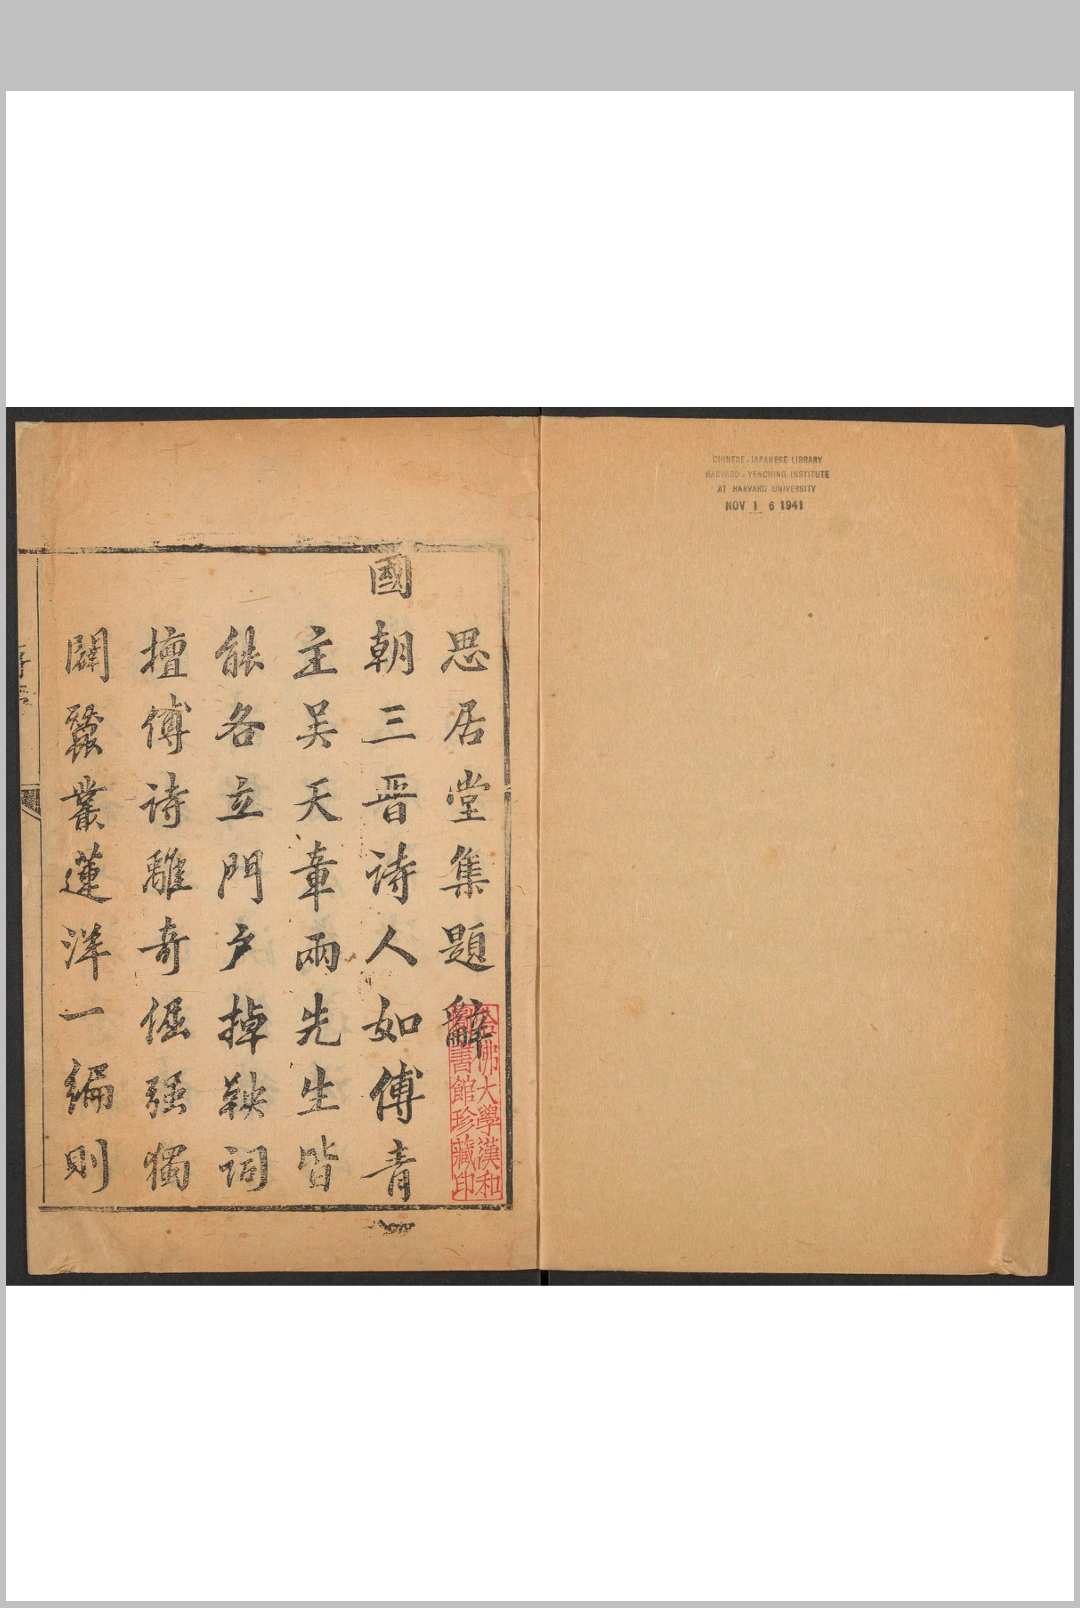 CHINESE-JAPANESE LIBRARY
HARVARD-YENCHING INSTITUTE
AT HARVARD UNIVERSITY
NOV 16 1941
思居堂集題辭
國朝三晋诗人如傅青
主吴天章兩先生皆
能各立門户掉鞅词
壇傅诗離奇倔强獨
闢蠶叢蓮洋一編則
哈佛大學漢和
圖書館珍藏印